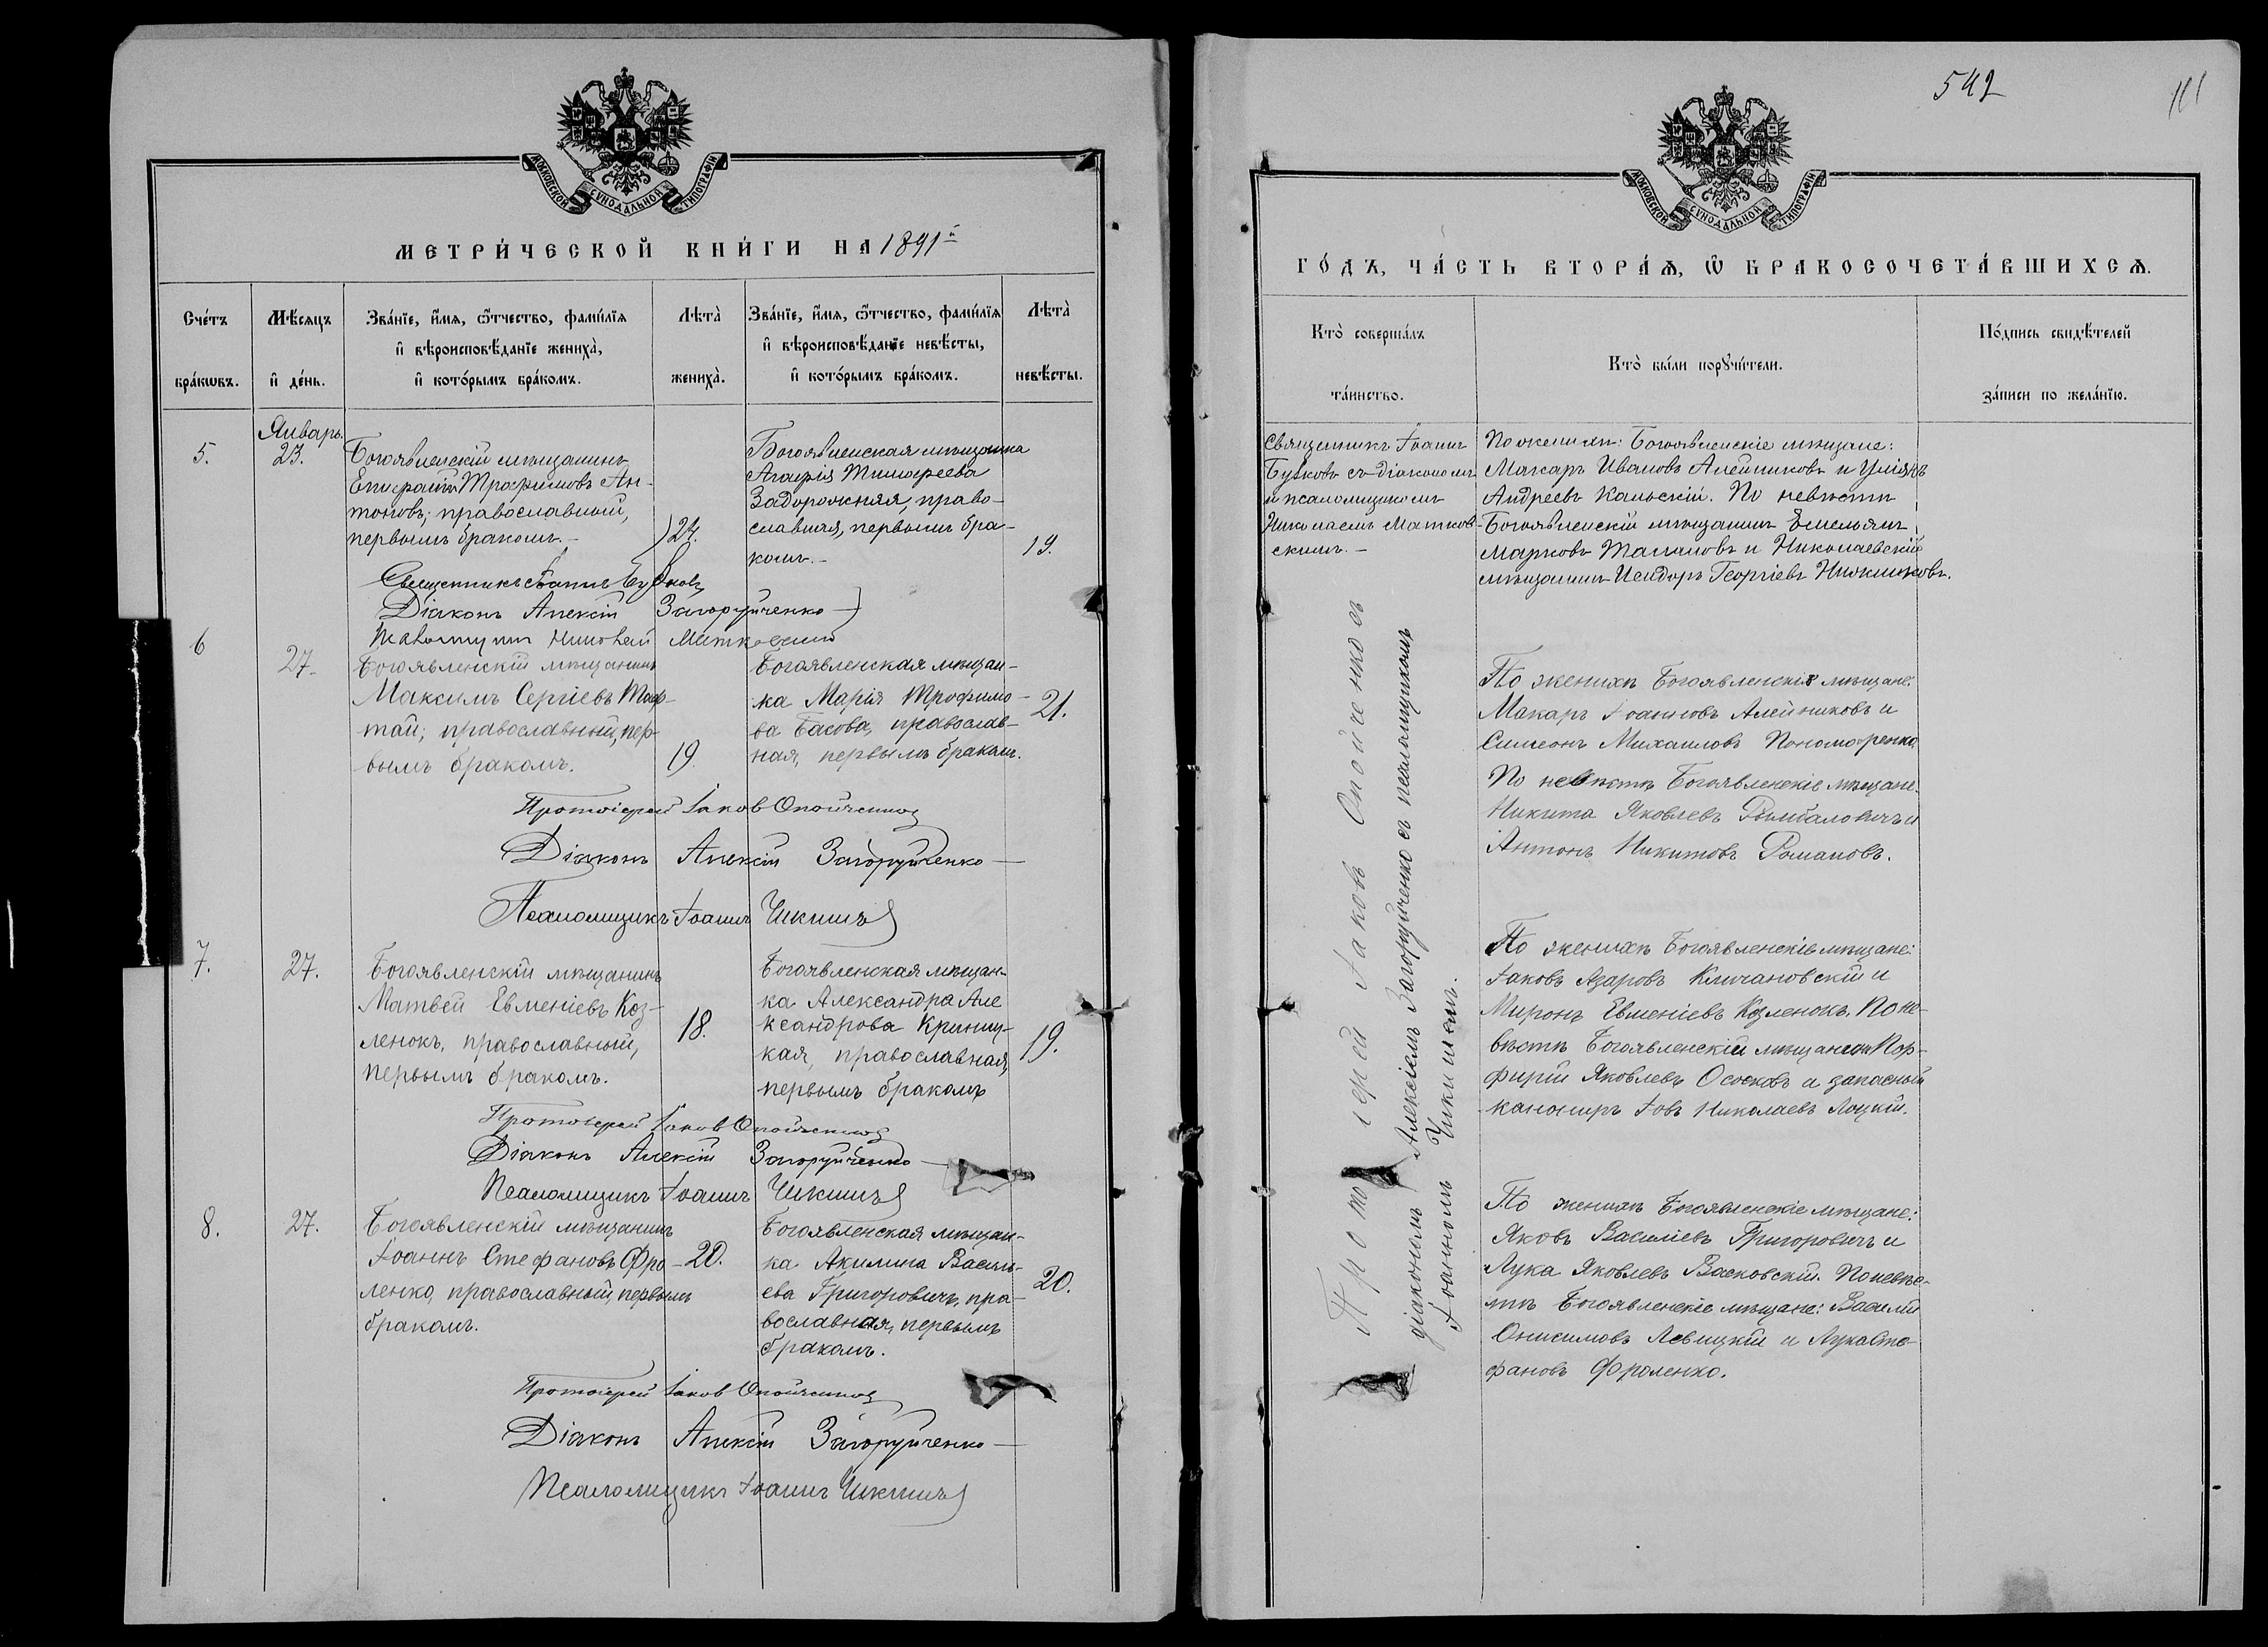 МОСКОВСКОЙ СѴНОДАЛЬНОЙ ТИПОГРАФІИ
МЕТРИ́ЧЕСКОЙ КНИ́ГИ НА 1891й
Сче́тъ бра́кѡвъ.
Мѣ́сяцъ и҆ де́нь.
Зва́нїе, и҆́мѧ, ѻ҆́тчество, фами́лїѧ
и҆ вѣроисповѣ́данїе жениха̀,
и҆ кото́рымъ бра́комъ.
Лѣта̀ жениха̀.
Зва́нїе, и҆́мѧ, ѻ҆́тчество, фами́лїѧ
и҆ вѣроисповѣ́данїе невѣ́сты,
и҆ кото́рымъ бра́комъ.
Лѣта̀ невѣ́сты.
5.
Январь.
23.
Богоявленскій мѣщанинъ
Трофимовъ Ан-
тоновъ, православный,
первымъ бракомъ.-
24.
Богоявленская мѣщанка
Агафія Тимофеева
Задорожняя, право-
славная, первымъ бра-
комъ.-
19.
Священникъ Іоаннъ Бубновъ
Діаконъ Алексій Загоруйченко
Николай Матковский
6
27.
Богоявленскій мѣщанинъ
Максимъ Сергіевъ Тоф-
тай; православный, пер-
вымъ бракомъ.
19.
Богоявленская мѣщан-
ка Марія Трофимо-
ва Басова, православ-
ная, первымъ бракомъ.
21.
Протоіерей Іаков Опойченко
Діаконъ Алексій Загоруйченко
Псаломщикъ Іоаннъ Чикишъ
7.
27.
Богоявленскій мѣщанинъ
Матвей Евменіевъ Коз-
ленокъ, православный,
первымъ бракомъ.
18.
Богоявленская мѣщан-
ка Александра Але
ксандрова Криниц-
кая, православная,
первымъ бракомъ
19.
Протоіерей Іаков Опойченко
Діаконъ Алексій Загоруйченко
Псаломщикъ Іоаннъ Чикишъ
8.
27.
Богоявленскій мѣщанинъ
Іоаннъ Стефановъ Фро-
ленко, православный, первымъ
бракомъ.
20.
Богоявленская мѣщан-
ка Акилина Василь-
ева Григоровичъ, пра-
вославная, первымъ
бракомъ.
20.
Протоіерей Іаков Опойченко
Діаконъ Алексій Загоруйченко
Псаломщикъ Іоаннъ Чикишъ
542
МОСКОВСКОЙ СѴНОДАЛЬНОЙ ТИПОГРАФІИ
ГО́ДЪ, ЧА́СТЬ ВТОРА́Ѧ, Ѽ БРАКОСОЧЕТА́ВШИХСѦ.
Кто̀ соверша́лъ
та́инство.
Кто̀ бы́ли порꙋчи́тели.
По́дпись свидѣ́телей
за́писи по жела́нїю.
Священникъ Іоаннъ
Бубновъ съ діакономъ
и псаломщикомъ
Николаемъ Матков-
скимъ.-
По женихѣ: Богоявленскіе мѣщане:
Макаръ Ивановъ Алейниковъ и
Андреевъ Кальскій. По невѣстѣ
Богоявленскій мѣщанинъ Емельянъ
Марковъ Талановъ и Николаевскій
мѣщанинъ Исидоръ Георгіевъ
Протоіерей Іаковъ Опойченко съ
діакономъ Алексіемъ Загоруйченко съ псаломщикомъ
Іоанномъ Чикишемъ.
По женихѣ Богоявленскія мѣщане:
Макаръ Іоанновъ Алейниковъ и
Симеонъ Михаиловъ Пономаренко.
По невѣстѣ Богоявленскіе мѣщане.
Никита Яковлевъ и
Антонъ Никитовъ Романовъ.
По женихѣ Богоявленскіе мѣщане:
Іаковъ Азаровъ Климановскій и
Миронъ Евменіевъ Козленокъ. По не-
вѣстѣ Богоявленскій мѣщанинъ Пор-
фирій Яковлевъ Ососковъ и запасный
канониръ Іовъ Николаевъ Лоцкій.
По женихѣ Богоявленскіе мѣщане:
Яковъ Василіевъ Григоровичъ и
Лука Яковлевъ Васковскій. По невѣс-
тѣ Богоявленскіе мѣщане: Василій
Онисимовъ Левицкій и Лука Сте-
фановъ Фроленко.